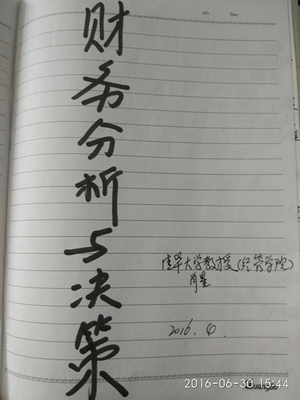 财务分析与决策
清华大学教授(经管学院)
肖星
2016.4.
2016-06-30 15:44